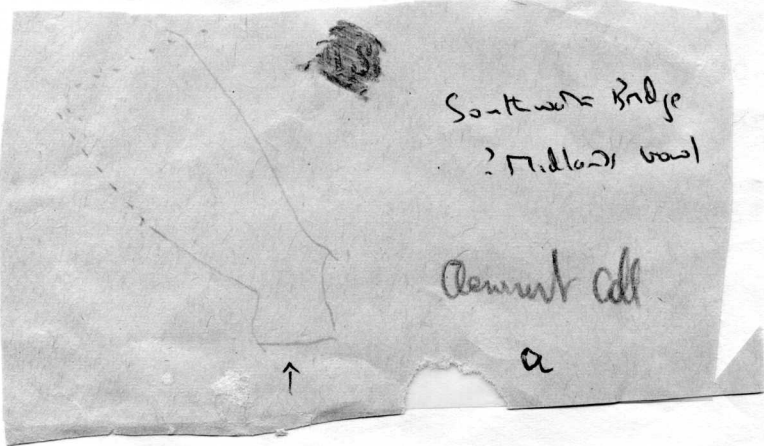 Southwark Bridge
? Midlands bowl
Clement Coll
a